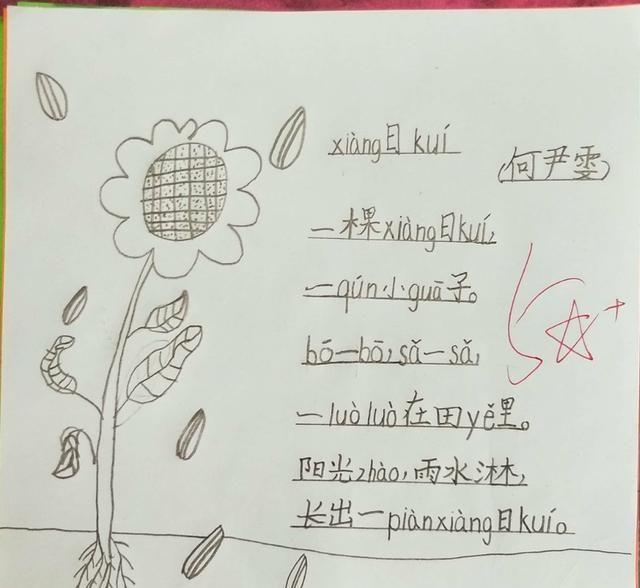 xiàng日kuí
(何尹雯)
一棵xiàng日kuí,
一qún小guā子。
bō一bō,sǎ一sǎ,
一luòluò在田yě里。
阳光zhào,雨水淋,
长出一piànxiàng日kuí。
5☆+